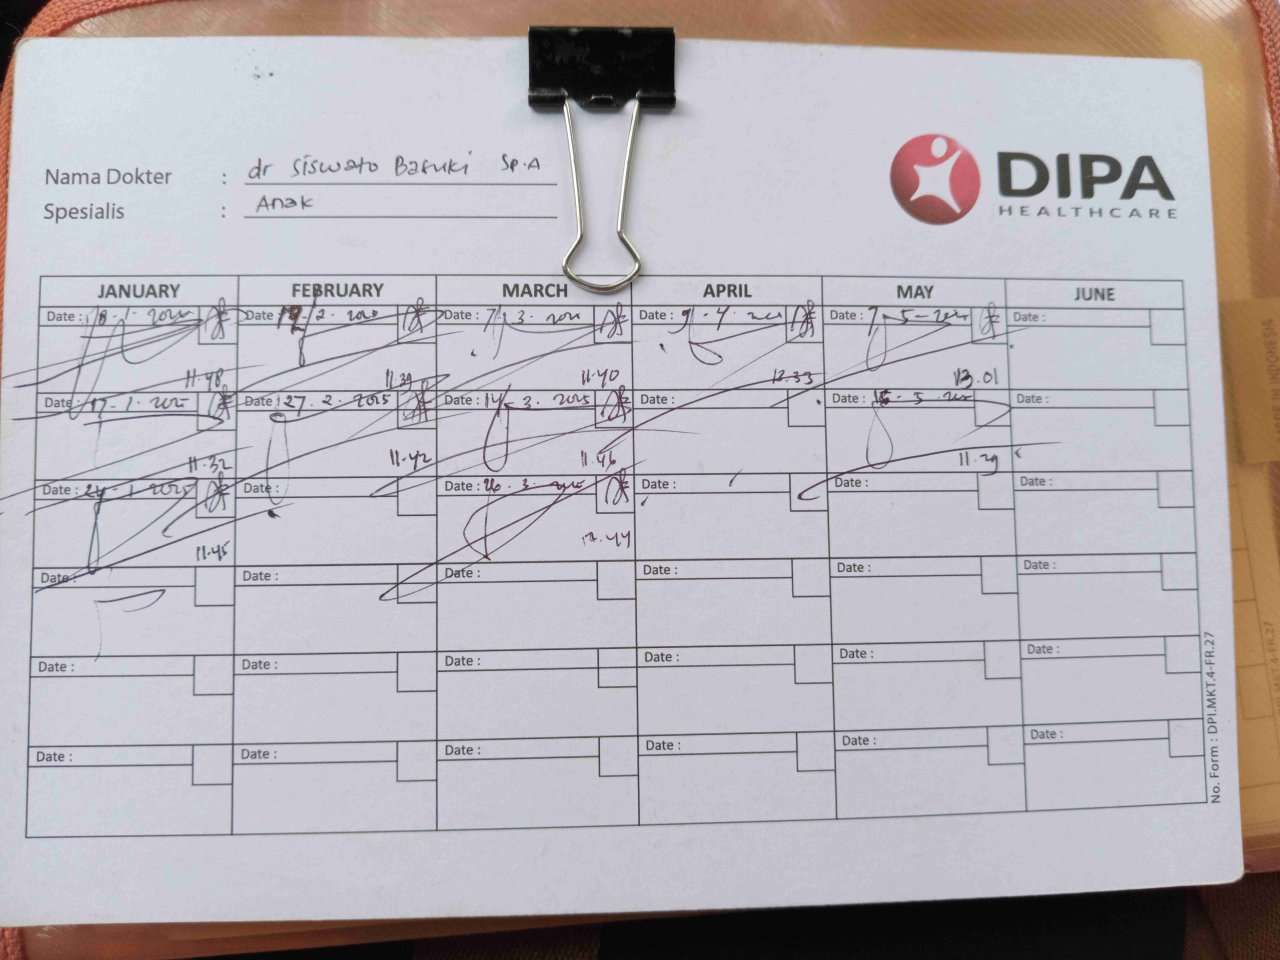 Nama Dokter : dr Siswato Basuki Sp.A
Spesialis : Anak
DIPA
HEALTHCARE
JANUARY FEBRUARY MARCH APRIL MAY JUNE
Date : Date : 2. Date : 7 . 3 . Date : 9 - 4 - Date : 7 - 5 - Date :
11.48 11.39 11.40 12.33 13.01
Date : 17 - 1 - 2025 Date : 27. 2. 2025 Date : 14 - 3. 2025 Date : Date : - 5 - Date :
11.32 11.42 11.46 11.29
Date : 24 - 1 - 2025 Date : Date : 26. 3. Date : Date : Date :
11.45
Date : Date : Date : Date : Date : Date :
Date : Date : Date : Date : Date : Date :
Date : Date : Date : Date : Date : Date :
No. Form : DPI.MKT.4-FR.27